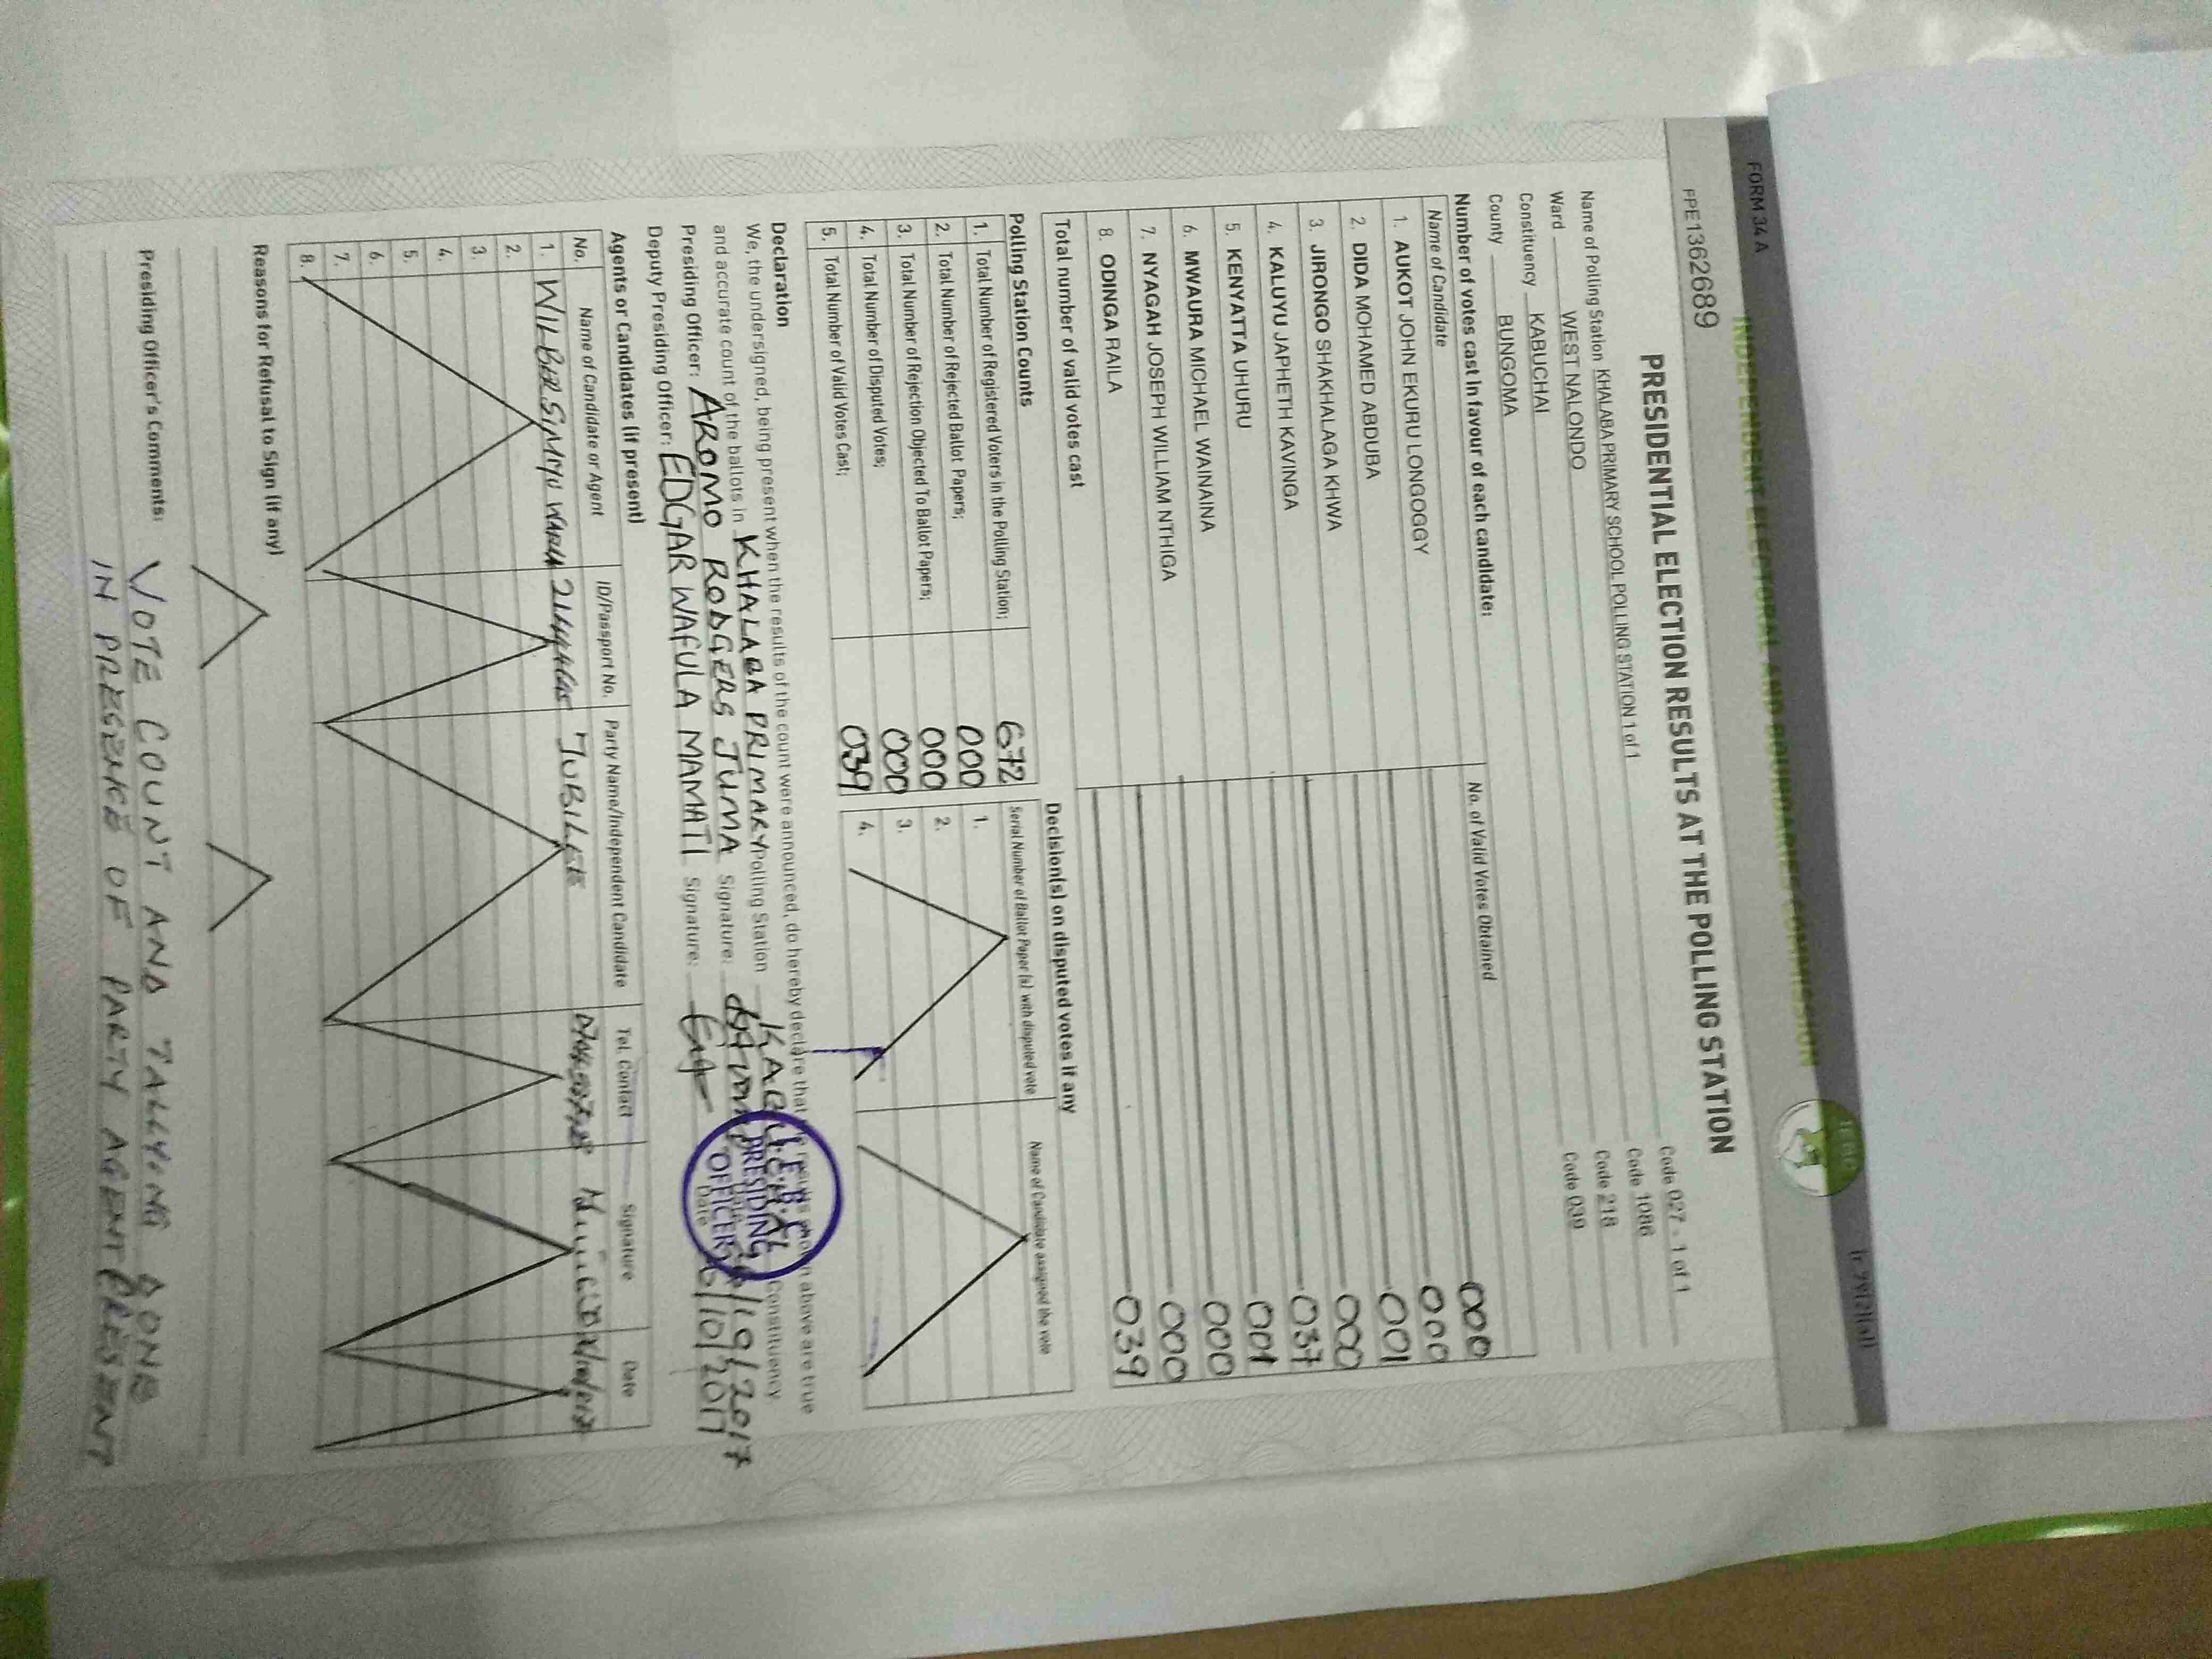 FORM 34 A
INDEPENDENT ELECTORAL AND BOUNDARIES COMMISSION
IEBC
(r.79(2)(a))
PPE1362689
PRESIDENTIAL ELECTION RESULTS AT THE POLLING STATION
Name of Polling Station KHALABA PRIMARY SCHOOL POLLING STATION 1 of 1 Code 027 - 1 of 1
Ward WEST NALONDO Code 1086
Constituency KABUCHAI Code 218
County BUNGOMA Code 039
Number of votes cast in favour of each candidate:
Name of Candidate No. of Valid Votes Obtained
1. AUKOT JOHN EKURU LONGOGGY 000
2. DIDA MOHAMED ABDUBA 000
3. JIRONGO SHAKHALAGA KHWA 001
4. KALUYU JAPHETH KAVINGA 000
5. KENYATTA UHURU 037
6. MWAURA MICHAEL WAINAINA 001
7. NYAGAH JOSEPH WILLIAM NTHIGA 000
8. ODINGA RAILA 000
Total number of valid votes cast 039
Polling Station Counts
1. Total Number of Registered Voters in the Polling Station; 672
2. Total Number of Rejected Ballot Papers; 000
3. Total Number of Rejection Objected To Ballot Papers; 000
4. Total Number of Disputed Votes; 000
5. Total Number of Valid Votes Cast; 039
Decision(s) on disputed votes if any
Serial Number of Ballot Paper (s) with disputed vote Name of Candidate assigned the vote
1.
2.
3.
4.
Declaration
We, the undersigned, being present when the results of the count were announced, do hereby declare that the results shown above are true
and accurate count of the ballots in KHALABA PRIMARY Polling Station KABUCHAI Constituency
Presiding Officer: AROMO RODGERS JUMA Signature: Date
Deputy Presiding Officer: EDGAR WAFULA MAMATI Signature: Date 26/10/2017
I.E.B.C
PRESIDING
OFFICER
Agents or Candidates (if present)
No. Name of Candidate or Agent ID/Passport No. Party Name/Independent Candidate Tel. Contact Signature Date
1. WILBER SIMIYU JUBILEE
2.
3.
4.
5.
6.
7.
8.
Reasons for Refusal to Sign (if any)
Presiding Officer's Comments: VOTE COUNT AND TALLYING DONE
IN PRESENCE OF PARTY AGENT PRESENT